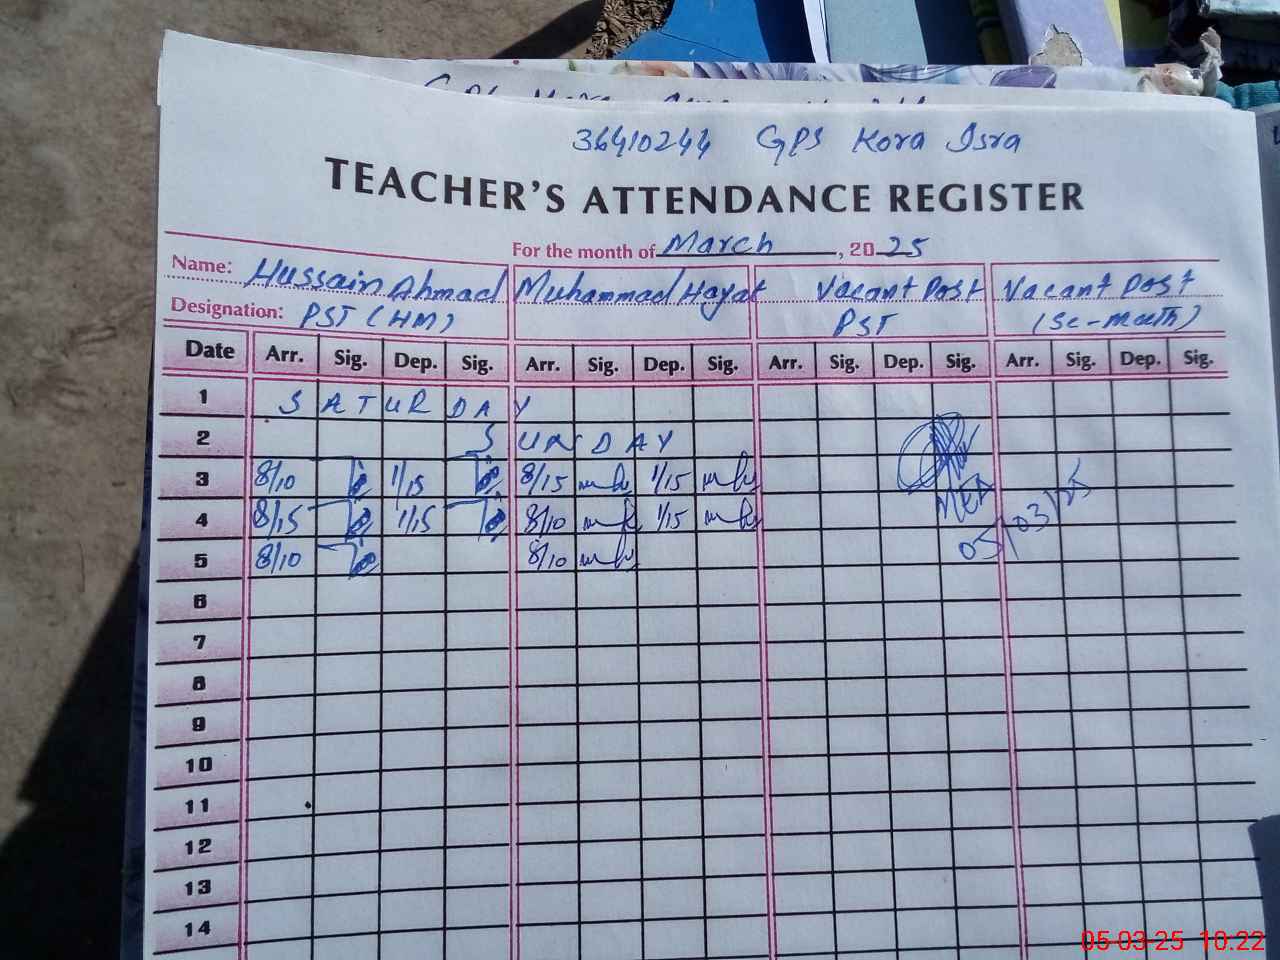 36410244 GPS Kora Isra
TEACHER'S ATTENDANCE REGISTER
For the month of March, 2025
Name: Hussain Ahmad Muhammad Hayat Vacant Post Vacant Post
Designation: PST (HM) PST (Sc-Math)
Date Arr. Sig. Dep. Sig. Arr. Sig. Dep. Sig. Arr. Sig. Dep. Sig. Arr. Sig. Dep. Sig.
1 SATURDAY
2 SUNDAY
3 8/10 1/15 8/15 1/15
4 8/15 1/15 8/10 1/15
MEA
05/03/25
5 8/10 8/10
6
7
8
9
10
11
12
13
14
05-03-25 10:22